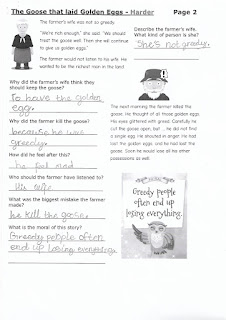 The Goose that laid Golden Eggs - Harder Page 2
The farmer's wife was not so greedy.
"We're not enough," she said. "We should
treat the goose well. Then she will continue
to give us golden eggs."
The farmer would not listen to his wife. He
wanted to be the richest man in the land.
Describe the farmer's wife.
What kind of person is she?
She's not greedy.
Why did the farmer's wife think they
should keep the goose?
To have the golden
egg.
Why did the farmer kill the goose?
because he was
greedy.
How did he feel after this?
he feel mad
Who should the farmer have listened to?
His wife
What was the biggest mistake the farmer
made?
he kill the goose.
What is the moral of this story?
Greedy people often
end up losing everything.
The next morning the farmer killed the
goose. He thought of all those golden eggs.
His eyes glittered with greed. Carefully he
cut the goose open, but ... he did not find
a single egg. He shouted in anger. He had
lost the golden eggs, and he had lost the
goose. Soon he would lose all his other
possessions as well.
Greedy people
often end up
losing everything.